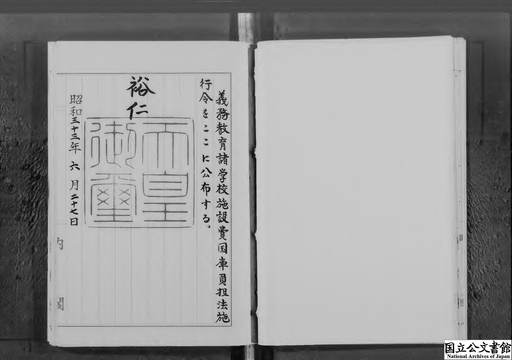 義務教育諸学校施設費国庫負担法施
行令をここに公布する。
裕仁
天皇
御璽
昭和三十三年六月二十七日
内閣
国立公文書館
National Archives of Japan